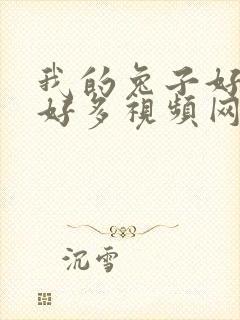 我的兔子好
好多视频网
沉雪